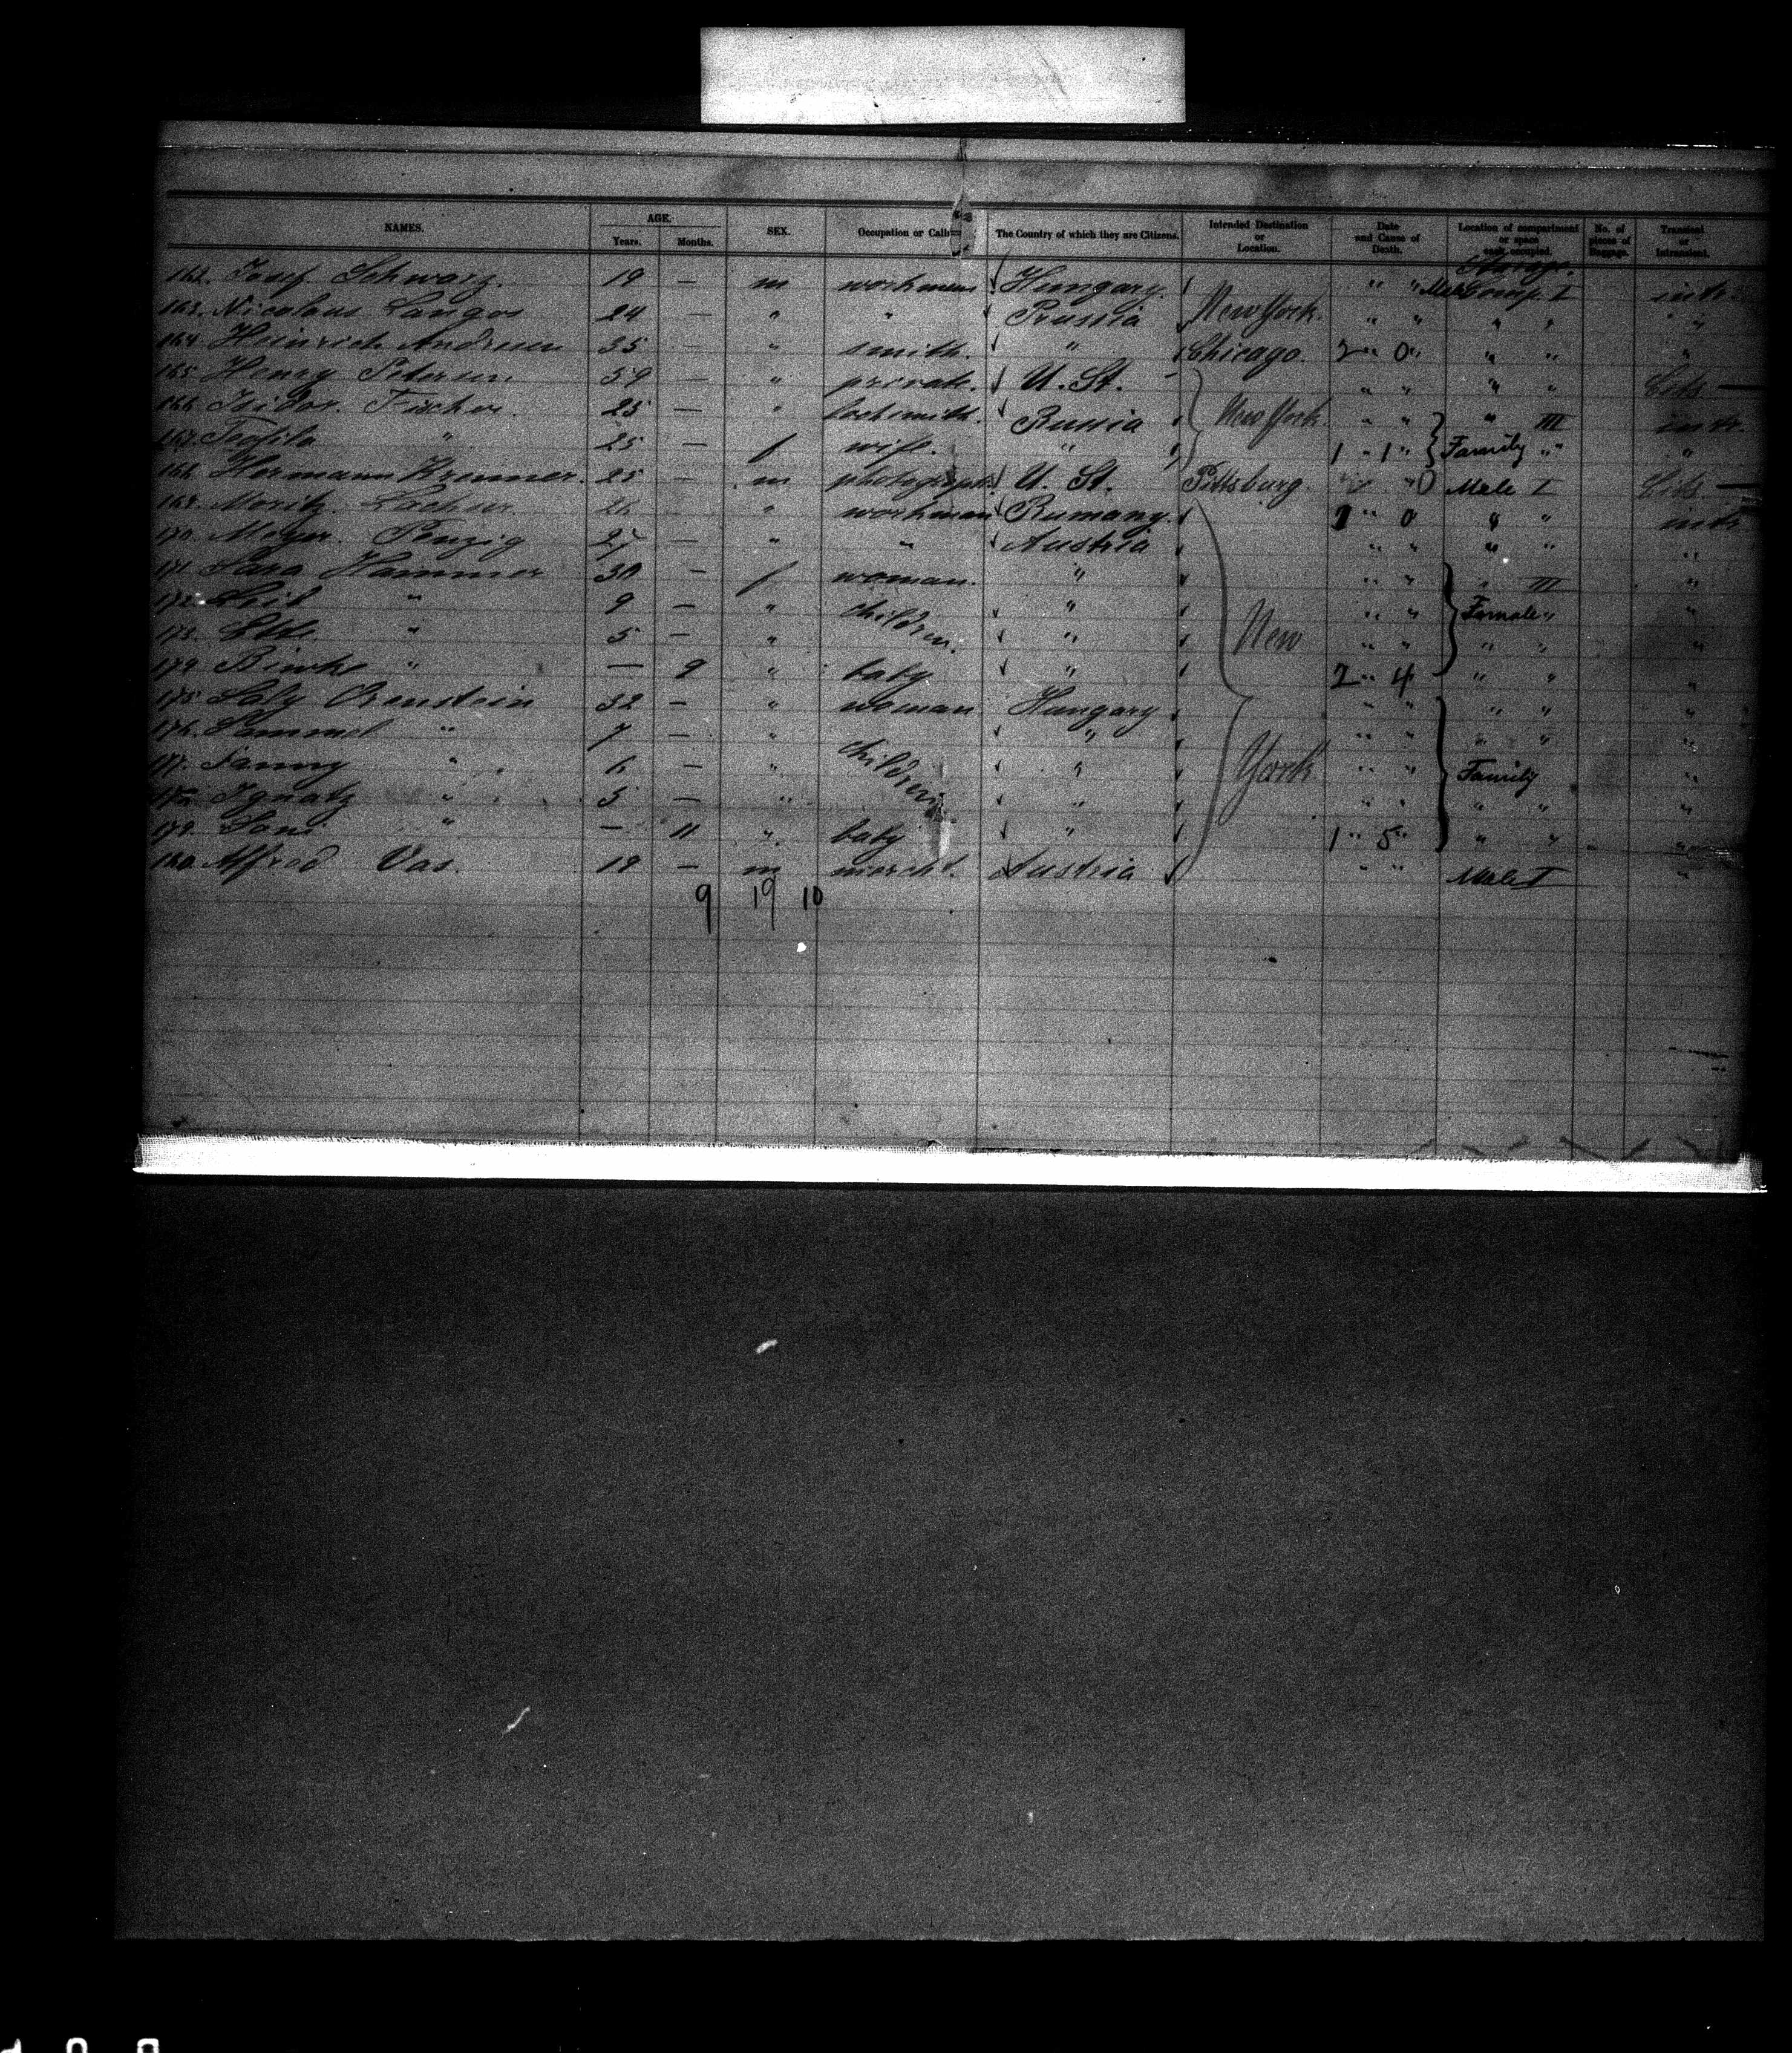 NAMES. AGE. Years. Months. SEX. Occupation or The Country of which they are Citizens. Intended Destination or Location. Date and Cause of Death. Location of compartment or space each occupied. No. of pieces of Baggage. Transient or Intransient.
162. Josef Schwarz. 19 — m workman Hungary. " " Male Comp. I intr.
163. Nicolaus Langos 24 — " " Prussia New York. " " " " "
164. Heinrich Andresen 35 — " smith. " Chicago. 2 " 0 " " " "
165. Henry Petersen 59 — " private. U. St. " " " " Cits —
166. Isidor. Fischer. 25 — " locksmith. Russia New York. " " " III intr.
167. Teofila " 25 — f wife. " 1 " 1 " Family " " "
168. Hermann Kremmer. 25 — m U. St. Pittsburg. 0 Male I Cits —
169. Moritz 26 " workman Rumany. 0 " " intr
170. Meyer. Penzig " " Austria " " " " "
171. Sara Hammer 30 — f woman. " " " " III "
172. " 9 — " children. " " " Female " "
173. " 5 — " " New " " " " "
174. " — 9 " baby " 2 " 4 " " "
175. Orenstein 32 — " woman Hungary " " " " "
176. " 7 — " children " " " " " "
177. Fanny " 6 — " " York " " Family "
178. Ignatz " 5 — " " " " " " "
179. " — 11 " baby " 1 " 5 " " " "
180. Alfred Vas. 19 — m Austria " " Male I "
9 19 10